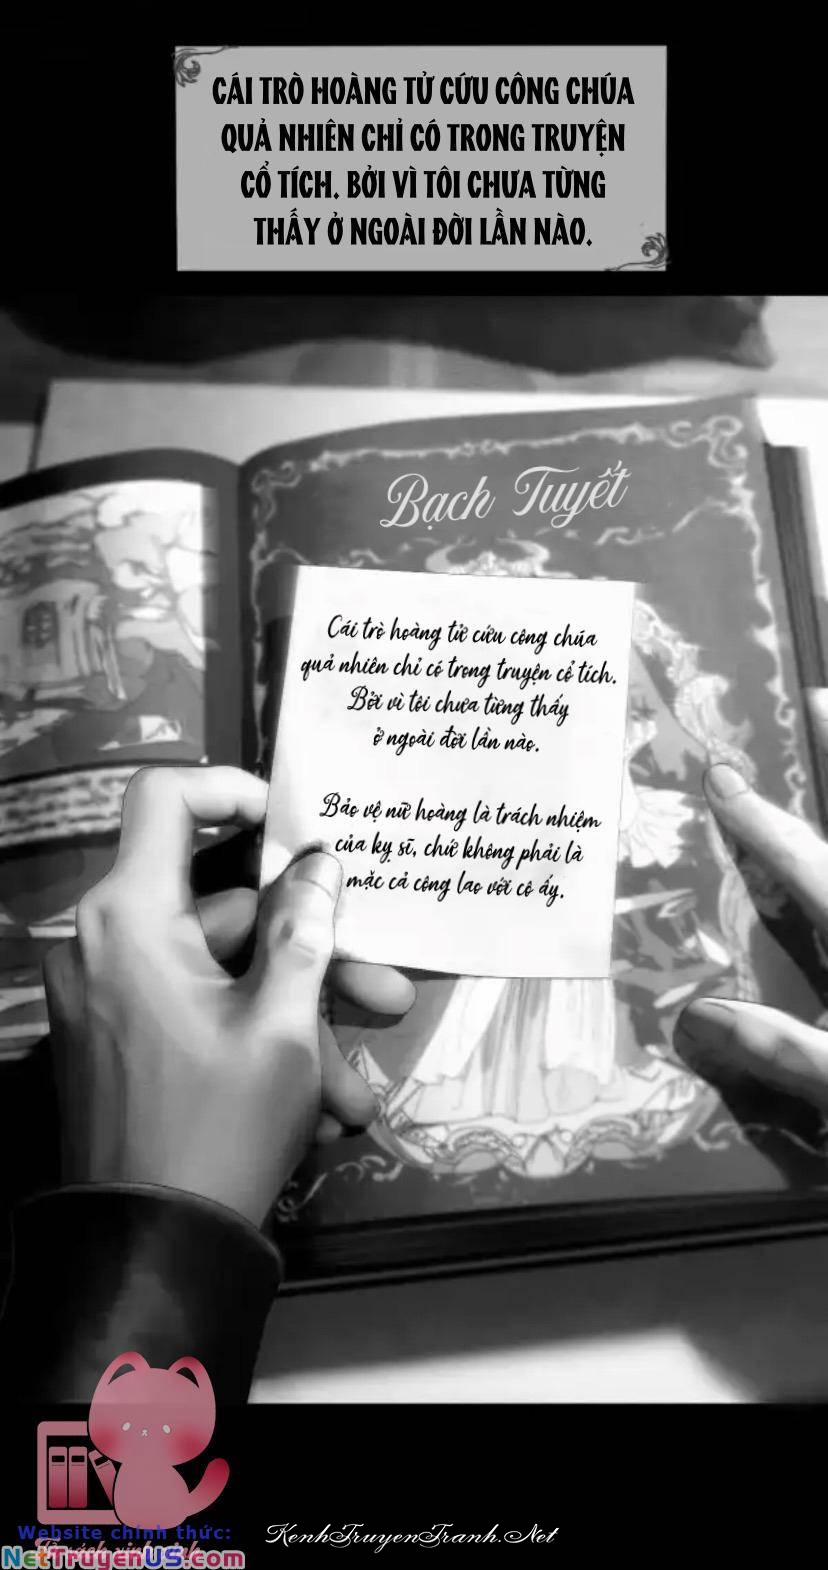 CÁI TRÒ HOÀNG TỬ CỨU CÔNG CHÚA
QUẢ NHIÊN CHỈ CÓ TRONG TRUYỆN
CỔ TÍCH. BỞI VÌ TÔI CHƯA TỪNG
THẤY Ở NGOÀI ĐỜI LẦN NÀO.
Bạch Tuyết
Cái trò hoàng tử cứu công chúa
quả nhiên chỉ có trong truyện cổ tích.
Bởi vì tôi chưa từng thấy
ở ngoài đời lần nào.
Bảo vệ nữ hoàng là trách nhiệm
của kỵ sĩ, chứ không phải là
mặc cả công lao với cô ấy.
Website chính thức:
KenhTruyenTranh.Net
NetTruyenUS.com